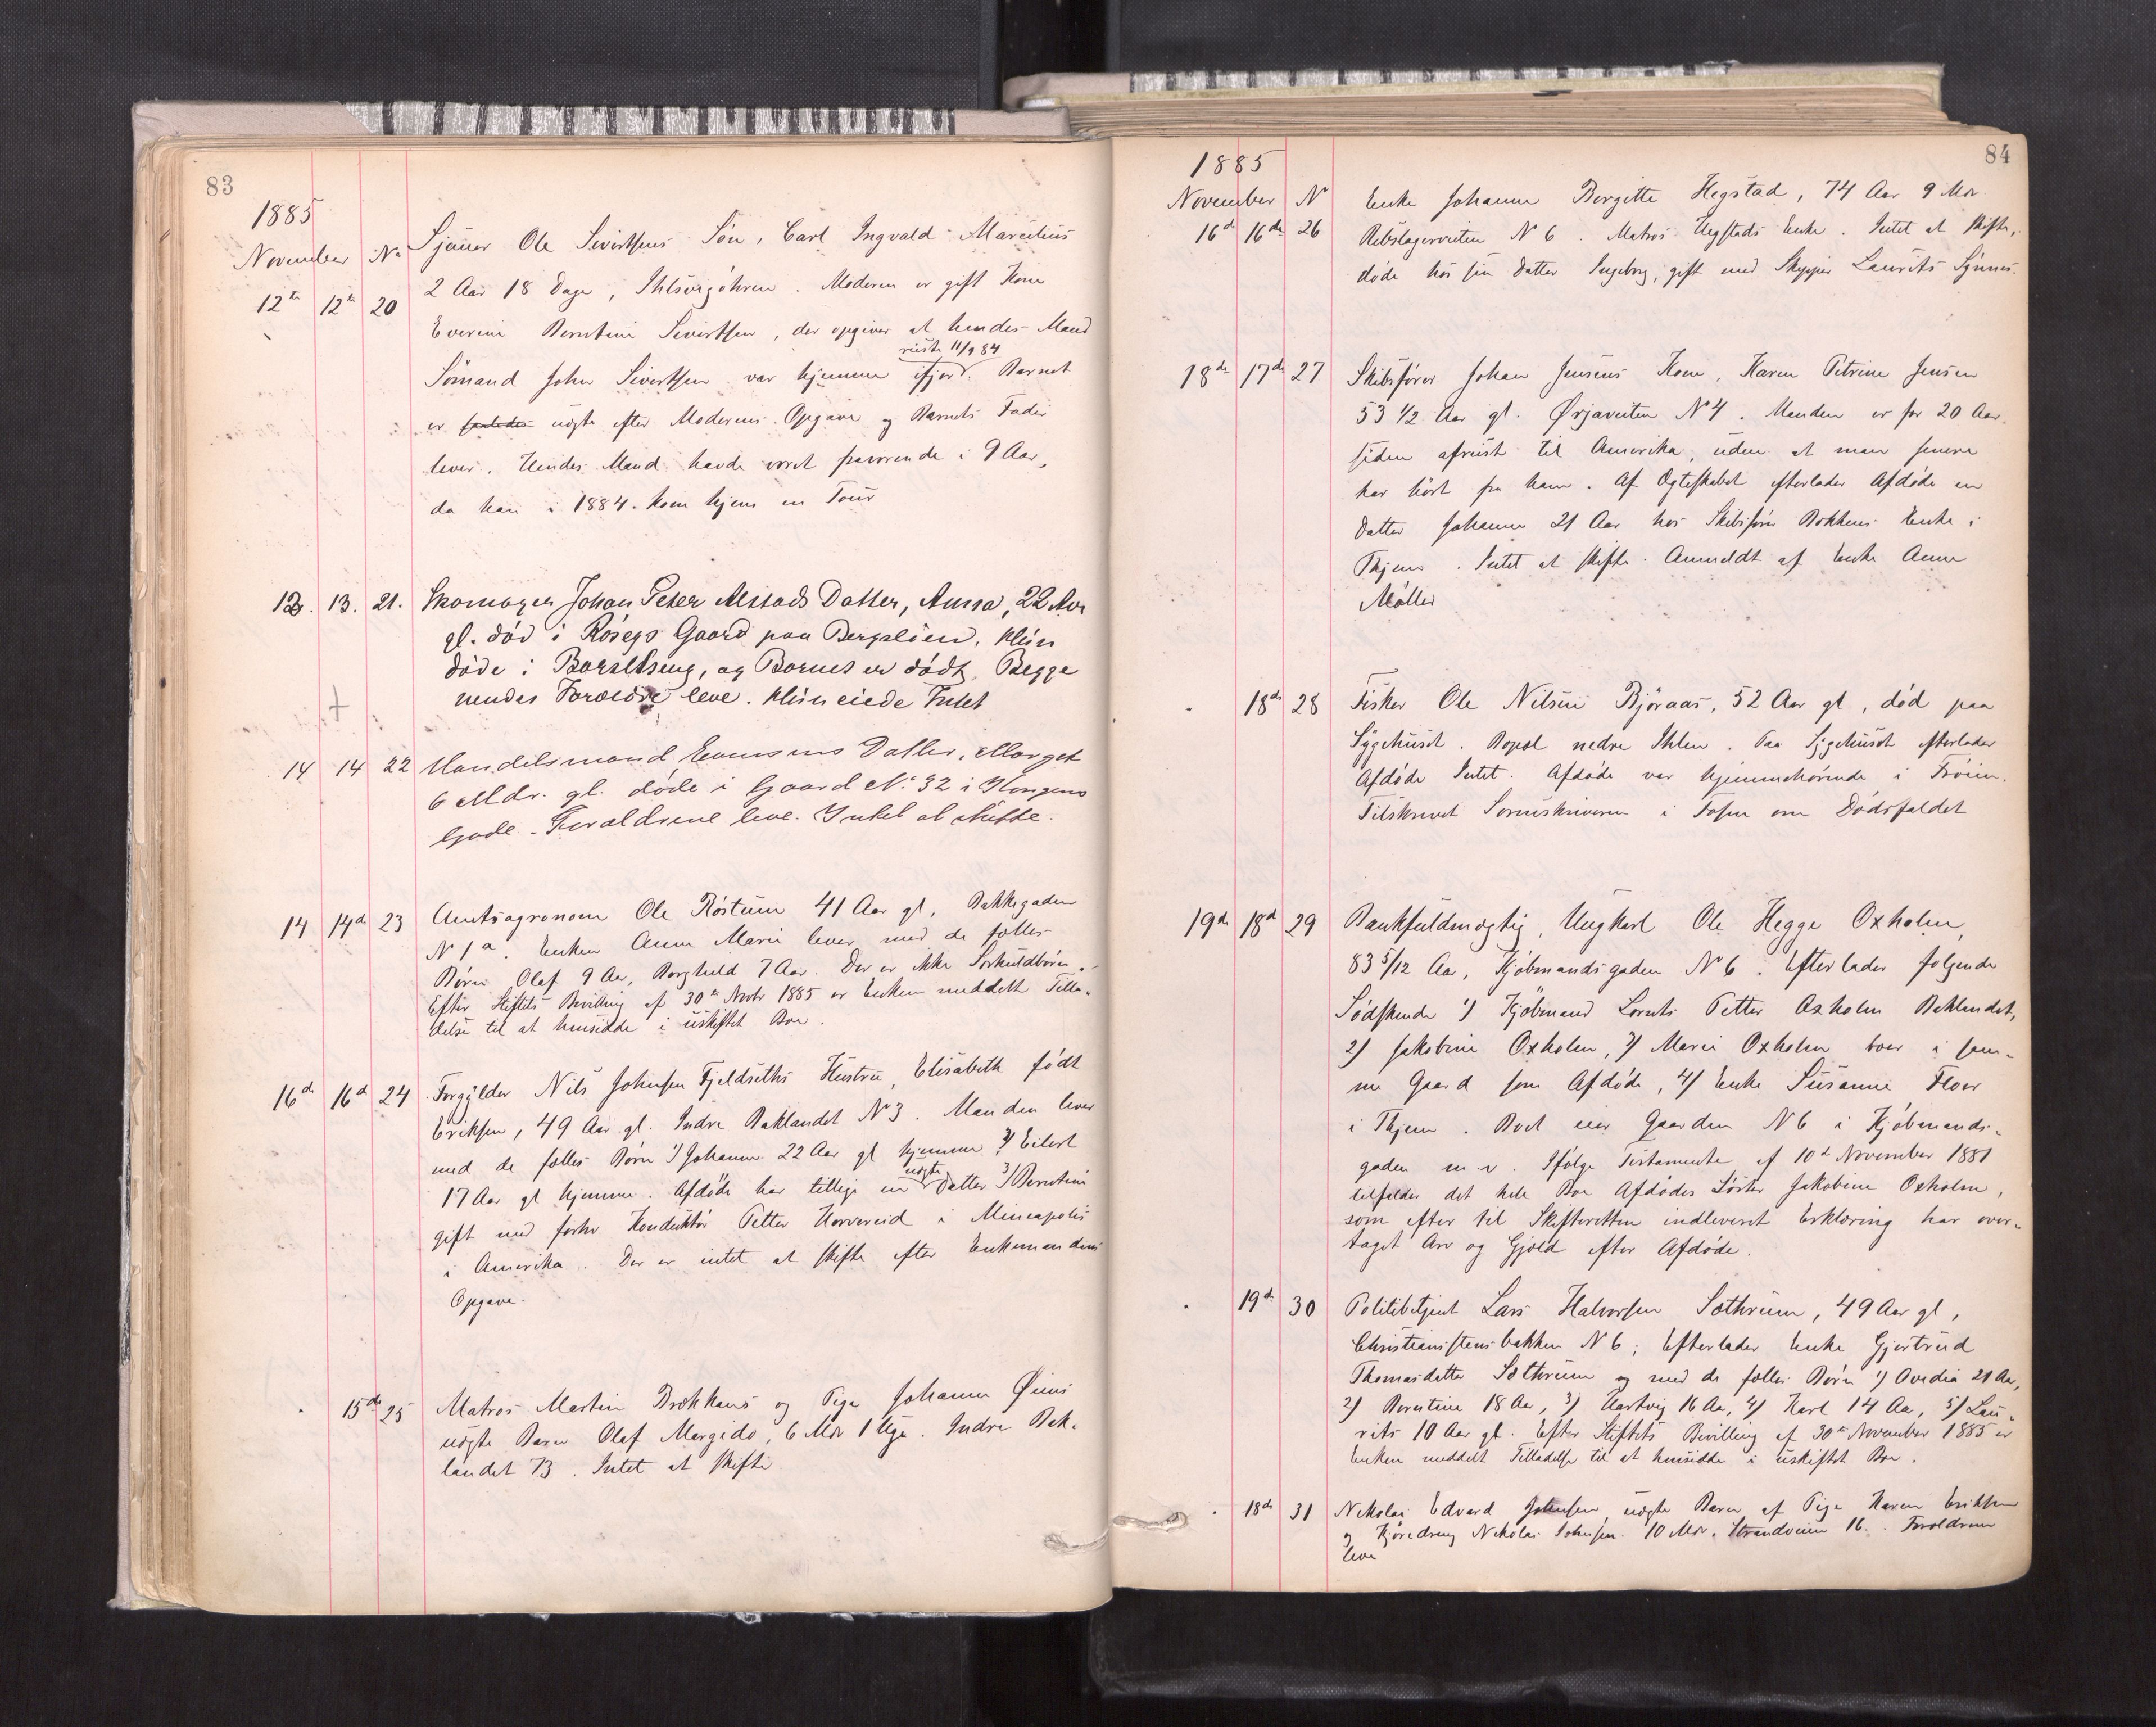 83
1885
November No
12te 12te 20 Sjauer Ole Sivertsens Søn, Carl Ingvald Marcelius
2 Aar 18 Dage, Ihlsvigøhren. Moderen er gift Kone
Everine Berntine Sivertsen, der opgiver at hendes Mand
reiste 11/9 84
Sømand John Sivertsen var hjemme ifjor. Barnet
er uægte efter Moderens Opgave og Barnets Fader
lever. Hendes Mand havde været fraværende i 9 Aar,
da han i 1884 kom hjem en Tour
12. 13. 21. Skomager Johan Peter Alstads Datter, Anna, 22 Aar
gl. død i Gaard paa Bergslien, Hun
døde i Barselseng, og Barnet er dødt, Begge
hendes Forældre leve. Hun eiede Intet
14 14 22 Handelsmand Evensens Datter, Marget
6 Mdr. gl. døde i Gaard No. 32 i Kongens
Gade. Forældrene leve. Intet at skifte.
14 14de 23 Amtsagronom Ole Røstum 41 Aar gl, Bakkegaden
N 1a. Enken Anne Marie lever med de fælles
Børn Olaf 9 Aar, Borghild 7 Aar. Der er ikke Særkuldbørn.
Efter Stiftets Bevilling af 30te Novbr 1885 er Enken meddelt Tilla-
delse til at hensidde i uskiftet Boe.
16de 16de 24 Forgylder Nils Johnsen Fjeldseths Hustru, Elisabeth født
Eriksen, 49 Aar gl. Indre Baklandet No 3. Manden lever
med de fælles Børn 1) Johanne 22 Aar gl hjemme 2) Eilert
uægte
17 Aar gl hjemme. Afdøde har tillige en Datter 3) Berntine
gift med forhv Konduktør Petter Horvereid i Mineapolis
i Amerika. Der er intet at skifte efter Enkemandens
Opgave.
15de 25 Matros Martin Brækkans og Pige Johanna Øiens
uægte Barn Olaf Margido, 6 Mdr 1 Uge. Indre Bak-
landet 73. Intet at skifte
84
1885
November N
16de 16de 26 Enke Johanne Bergitte Hegstad, 74 Aar 9 Mdr
Rebslagerveiten N 6. Matros Hegstads Enke. Intet at skifte,
døde hos sin Datter Ingeborg, gift med Skipper Laurits Synnes.
18de 17de 27 Skibsfører Johan Jensens Kone, Karen Petrine Jensen
53 1/2 Aar gl. Ørjaveiten No 4. Manden er for 20 Aar
siden afreist til Amerika, uden at man senere
har hørt fra ham. Af Ægteskabet efterlader Afdøde en
Datter Johanne 21 Aar hos Skibsfører Bokkens Enke i
Thjem. Intet at skifte. Anmeldt af Enke Anne
Møller
18de 28 Fisker Ole Nilsen Bjøraas, 52 Aar gl, død paa
Sygehuset. Bopæl nedre Ihlen. Paa Sygehuset efterlader
Afdøde Intet. Afdøde var hjemmehørende i Frøien.
Tilskrevet Sorenskriveren i Fosen om Dødsfaldet
19de 18de 29 Bankfuldmægtig, Ungkarl Ole Hegge Oxholm,
83 5/12 Aar, Kjøbmandsgaden No 6. Efterlader følgende
Sødskende 1) Kjøbmand Lorents Petter Oxholm Baklandet,
2) Jakobine Oxholm, 3) Marie Oxholm boer i sam-
me Gaard som Afdøde, 4) Enke Susanne Floer
i Thjem. Boet eier Gaarden N 6 i Kjøbmands-
gaden m. v. Ifølge Testamente af 10de November 1881
tilfalder det hele Boe Afdødes Søster Jakobine Oxholm,
som efter til Skifteretten indleveret Erklæring har over-
taget Arv og Gjæld efter Afdøde.
19de 30 Politibetjent Lars Halvorsen Sæthrum, 49 Aar gl,
Christianstensbakken N 6; Efterlader Enke Gjertrud
Thomasdatter Sæthrum og med de fælles Børn 1) Ovedia 21 Aar,
2) Berntine 18 Aar, 3) Hartvig 16 Aar, 4) Karl 14 Aar, 5) Lau-
rits 10 Aar gl. Efter Stiftets Bevilling af 30te November 1885 er
Enken meddelt Tilladelse til at hensidde i uskiftet Boe.
18de 31 Nikolai Edvard Johnsen uægte Barn af Pige Karen Eriksen
og Kjøredreng Nikolai Johnsen. 10 Mdr. Strandveien 16. Forældrene
leve